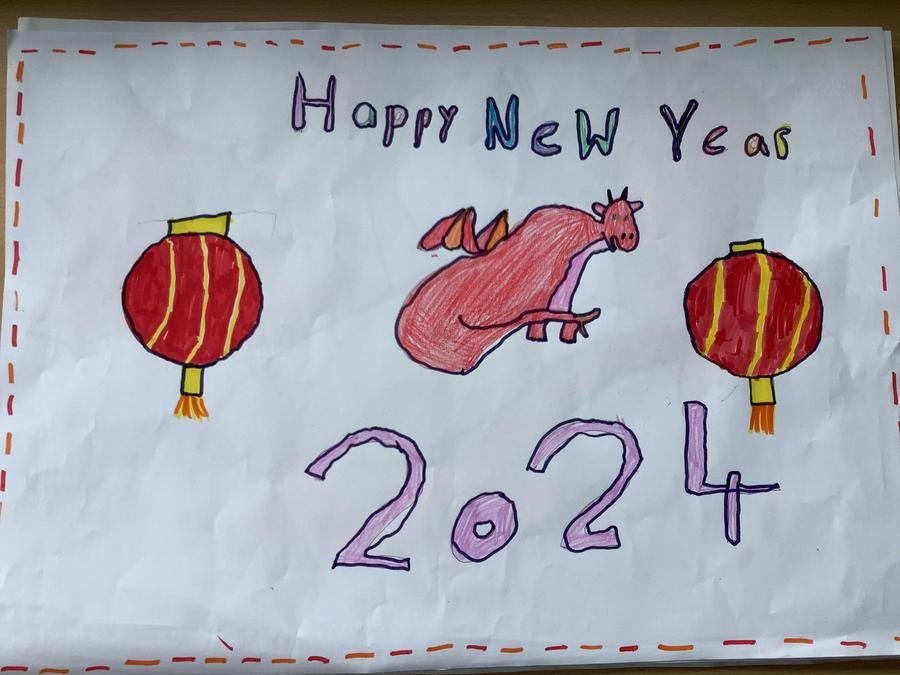 Happy NeW Year
2024